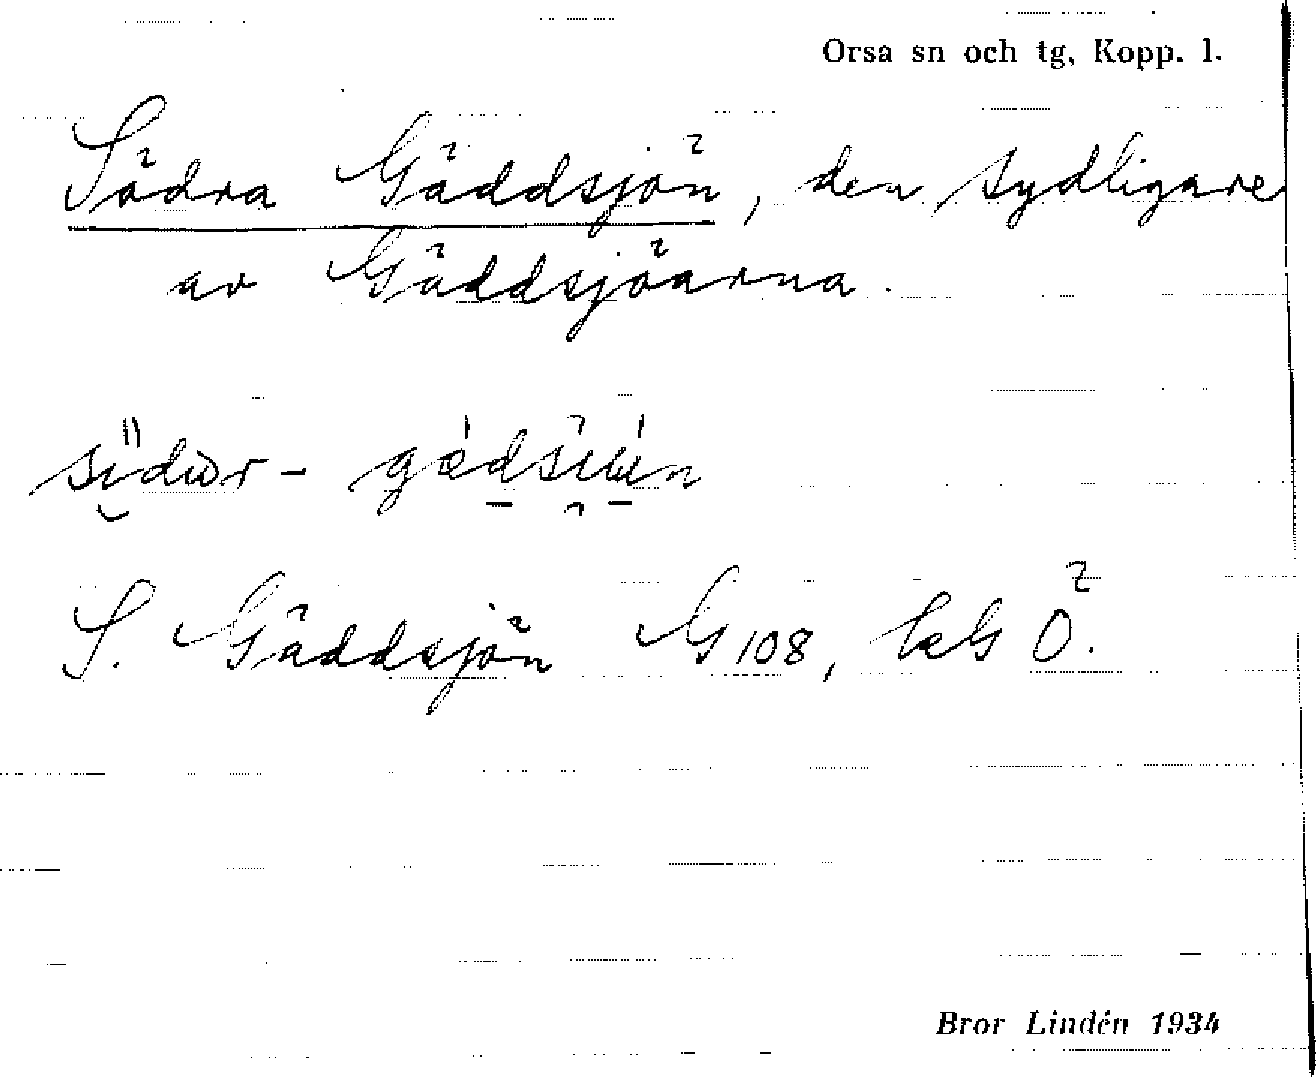 Orsa sn och tg, Kopp. l.
Södra Gäddsjön, den sydligare
av Gäddsjöarna.
S. Gäddsjön G 108, bl G Ö.
Bror Lindén 1934